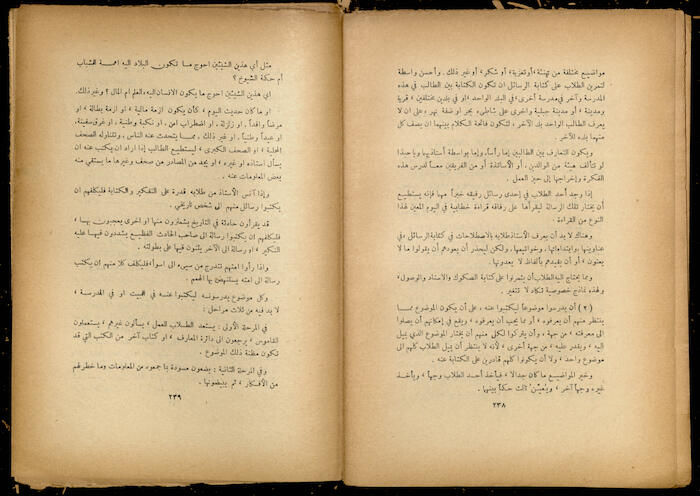 مواضيع مختلفة من تهنئة ، أو تعزية ، أو شكر ، أو غير ذلك . وأحسن واسطة
لتمرين الطلاب على كتابة الرسائل ان تكون الكتابة بين الطالب في هذه
المدرسة وآخر في مدرسة أخرى ، في البلد الواحد ، او في بلدين مختلفين ، قرية
ومدينة ، أو مدينة جبلية واخرى على شاطىء بحر او ضفة نهر ، على ان لا
يعرف الطالب الواحد بلد الآخر ، لتكون فاتحة الكلام بينهما ان يصف كل
منهما بلده للآخر .
ويكون التعارف بين الطالبين إما رأساً ، وإما بواسطة أستاذيهما ، وياحبذا
لو تتألف هيئة من الوالدين ، أو الأساتذة أو من الفريقين معاً لدرس هذه
الفكرة وإخراجها إلى حيز العمل .
إذا وجد أحد الطلاب في إحدى رسائل رفيقه خبراً مهما فإنه يستطيع
أن يختار تلك الرسالة ليقرأها على رفاقه قراءة خطابية في اليوم المعين لهذا
النوع من القراءة .
وهناك لا بد أن يعرف الأستاذ طلابه بالاصطلاحات في كتابة الرسائل ، في
عناوينها ، وابتداءاتها ، وخواتيمها ، ولكن ليحذر أن يعودهم أن يقولوا ما لا
يعنون ، أو أن يقيدهم بألفاظ لا يعدونها .
ومما يحتاج اليه الطلاب أن يتمرنوا على كتابة الصكوك والاسناد والوصول ،
ولهذه نماذج خصوصية تكاد لا تتغير .
( ٢ ) أن يدرسوا موضوعاً ليكتبوا عنه ، على أن يكون الموضوع مما
ينتظر منهم أن يعرفوه ، أو مما يجب أن يعرفوه ، ويقع في إمكانهم أن يصلوا
الى معرفته ، من جهة ، وأن يتركوا لكل منهم أن يختار الموضوع الذي يميل
اليه ، ويقدر عليه ، من جهة أخرى ، لأنه لا ينتظر أن يميل الطلاب كلهم الى
موضوع واحد ، ولا أن يكونوا كلهم قادرين على الكتابة عنه .
وخير المواضيع ما كان جدالا ، فيأخذ أحد الطلاب وجهاً ، ويأخذ
غيره وجهاً آخر ، ويعيَّن ثالث حكماً بينهما .
٢٣٨
مثل أي هذين الشيئين احوج ما تكون البلاد اليه اهمة الشباب
أم حكمة الشيوخ ؟
اي هذين الشيئين احوج ما يكون الانسان اليه ، العلم ام المال ؟ وغير ذلك .
او ما كان حديث اليوم ، كأن يكون ازمة مالية ، او ازمة بطالة ، او
مرضاً وافداً ، او زلزلة ، او اضطراب امن ، او نكبة وطنية ، او غرق سفينة ،
او عيداً وطنياً ، او غير ذلك ، مما يتحدث عنه الناس ، وتتناوله الصحف
المحلية ، او الصحف الكبرى ، ليستطيع الطالب إذا اراد ان يكتب عنه ان
يسأل استاذه او غيره ، او يجد من المصادر من صحف وغيرها ما يستقي منه
بعض المعلومات عنه .
وإذا آنس الأستاذ من طلابه قدرة على التفكير ، والكتابة فليكلفهم ان
يكتبوا رسائل منهم الى شخص تاريخي .
قد يقرأون حادثة في التاريخ يشمأزون منها او اخرى يعجبون بها ،
فليكلفهم ان يكتبوا رسالة الى صاحب الحادث الفظيع يشددون فيها عليه
النكير ، او رسالة الى الآخر يثنون فيها على بطولته .
واذا رأوا امتهم تتدرج من سيىء الى اسوأ ، فليكلف كلا منهم ان يكتب
رسالة الى امته يستنهض بها الهمم .
وكل موضوع يدرسونه ليكتبوا عنه في البيت او في المدرسة ،
لا بد فيه من ثلاث مراحل :
في المرحلة الأولى : يستعد الطلاب للعمل ، يسألون غيرهم ، يستعملون
القاموس ، يرجعون الى دائرة المعارف ، او كتاب آخر من الكتب التي قد
تكون مظنة ذلك الموضوع .
وفي المرحلة الثانية : يضعون مسودة بما جمعوه من المعلومات وما خطر لهم
من الأفكار ، ثم يبيضونها .
٢٣٩